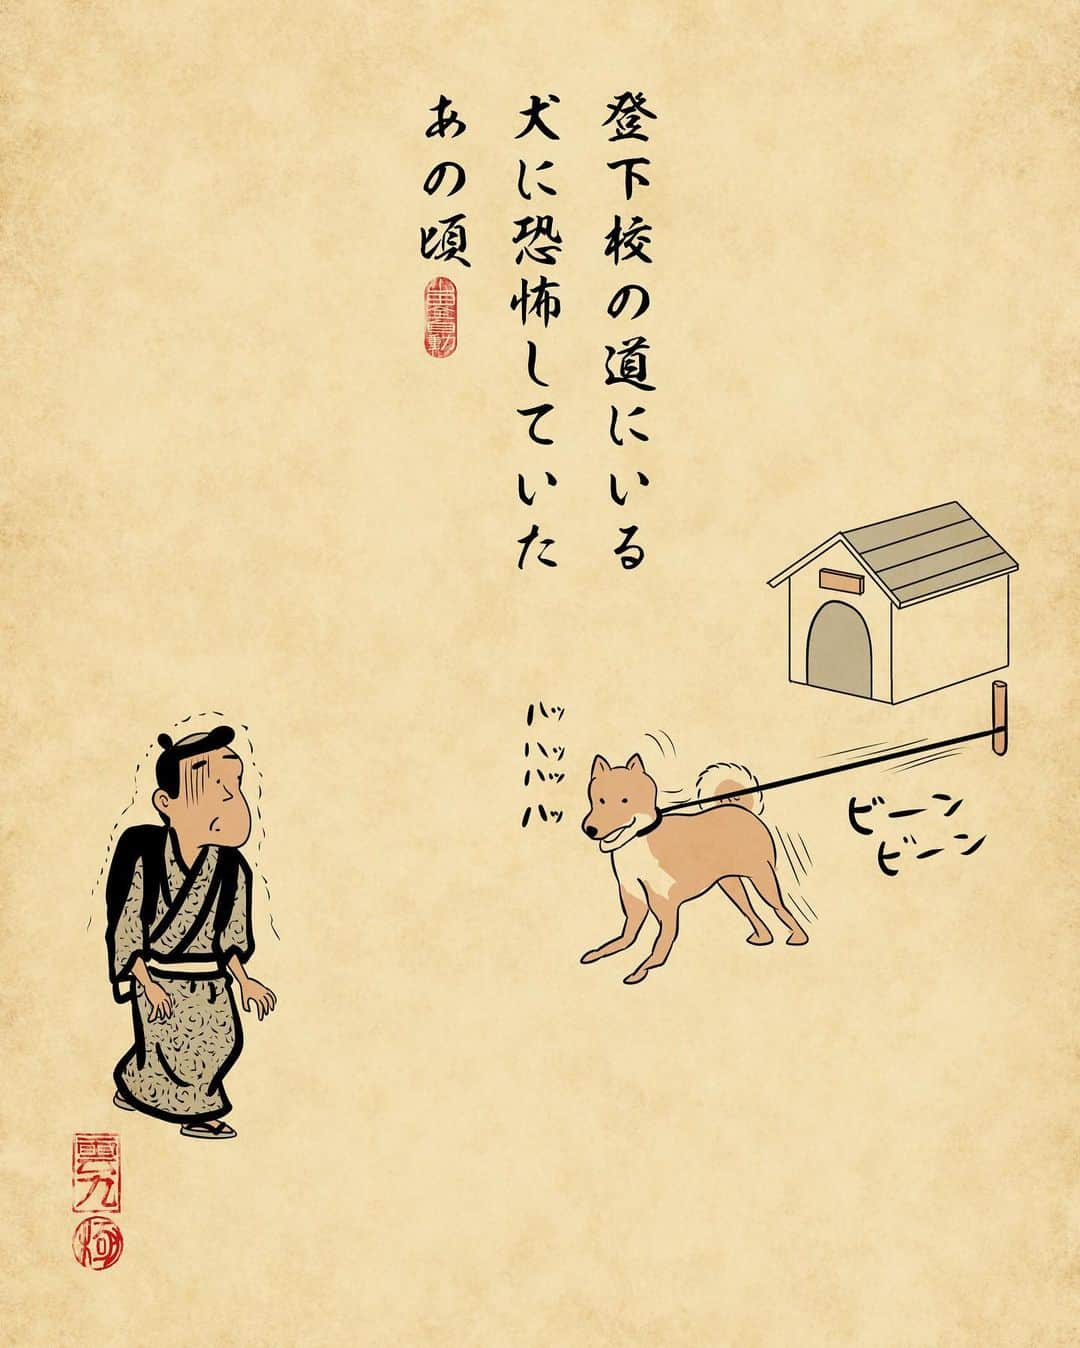 登下校の道にいる
犬に恐怖していた
あの頃
ハッ
ハッ
ハッ
ハッ
ビーン
ビーン